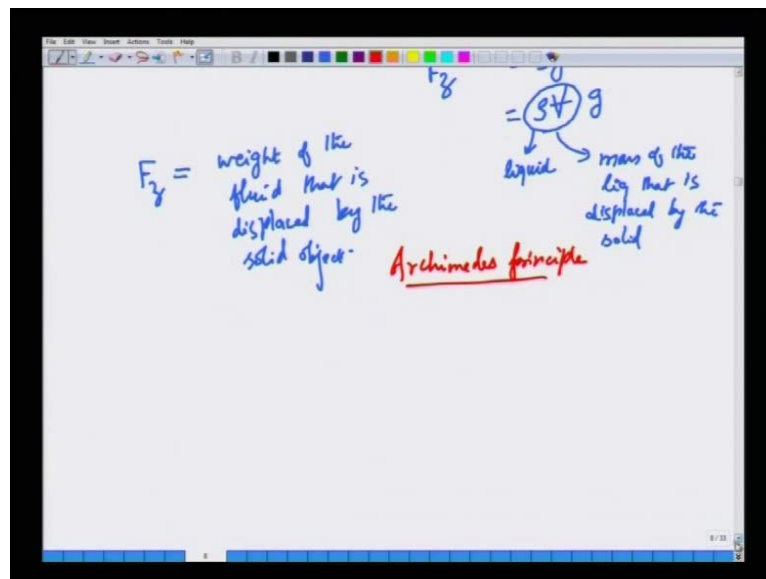 File Edit View Insert Actions Tools Help
F_z
= (ρV) g
liquid
mass of the
liq that is
displaced by the
solid
F_z = weight of the
fluid that is
displaced by the
solid object.
Archimedes principle
8/33
8